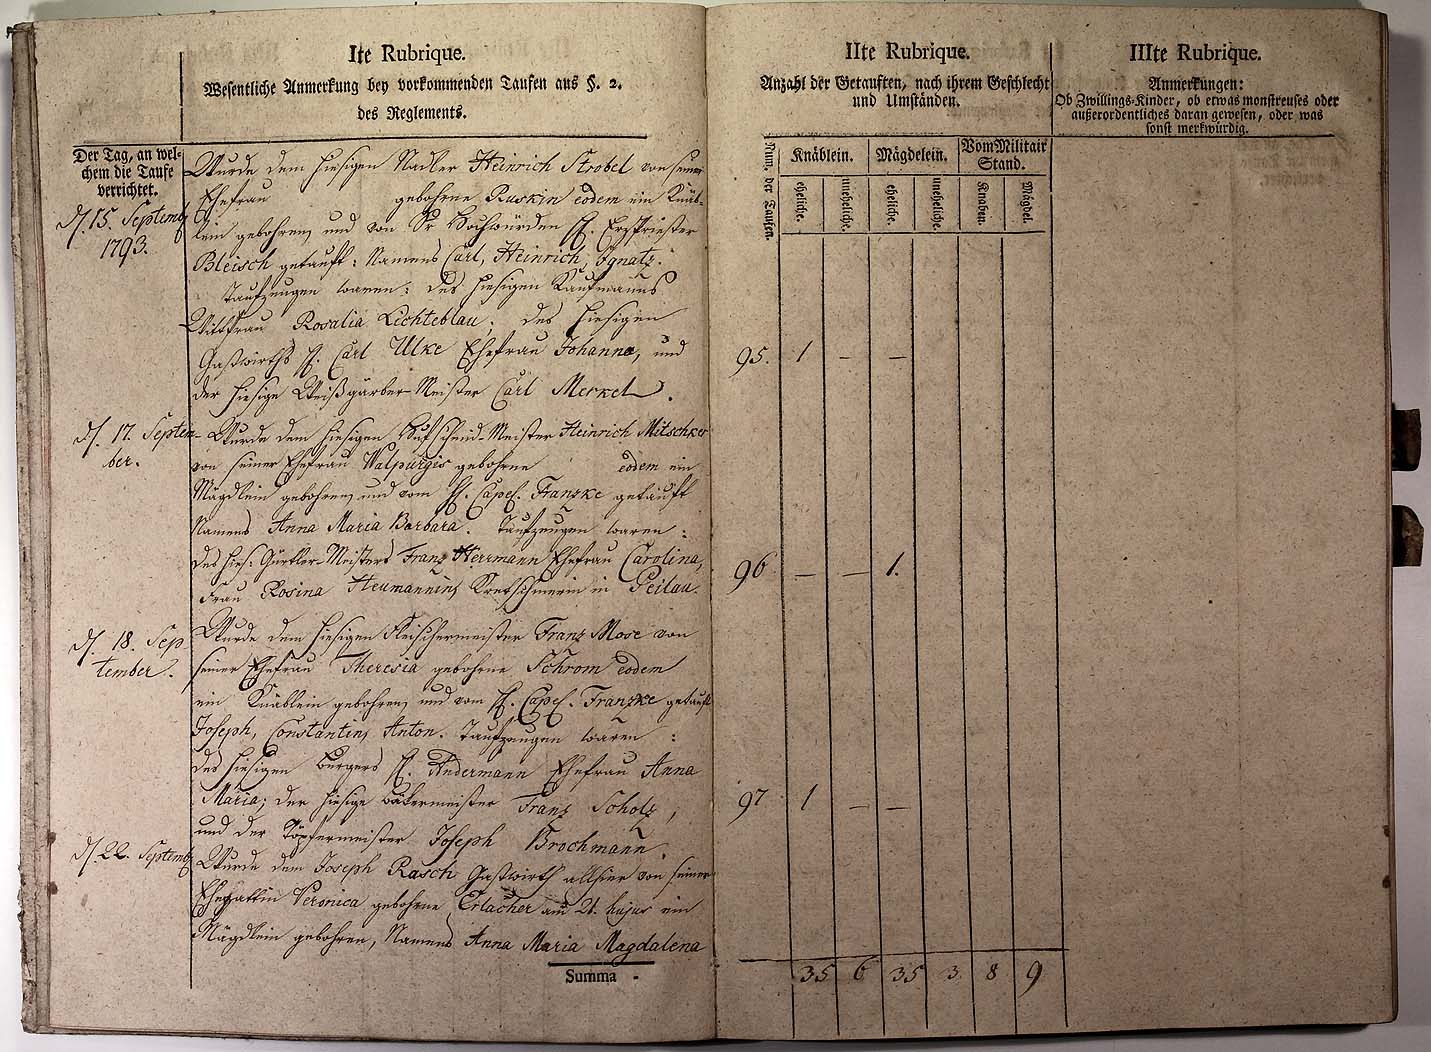 Ite Rubrique.
Wesentliche Anmerkung bey vorkommenden Taufen aus §. 2.
des Reglements.
Der Tag, an wel-
chem die Taufe
verrichtet.
d. 15. Septemb
1793.
Wurde dem hiesigen Nadler Heinrich Strobel von seiner
Ehefrau gebohrne Ruskin eodem ein Knäb-
lein gebohren, und von Sr Hochwürden H. Erzpriester
Bleisch getauft: Namens Carl, Heinrich, Ignatz.
Taufzeugen waren: des hiesigen Kaufmanns
Wittfrau Rosalia Lichteblau; des hiesigen
Gastwirths H. Carl Ulke Ehefrau Johanna, und
der hiesige Weißgärber-Meister Carl Merkel.
d. 17. Septem-
ber.
Wurde dem hiesigen Hufschmid-Meister Heinrich Mitschker
von seiner Ehefrau Walpurgis gebohrne eodem ein
Mägdlein gebohren, und vom H. Capel. Franzke getauft
Namens Anna Maria Barbara. Taufzeugen waren:
des hies. Gürtler-Meisters Franz Herrmann Ehefrau Carolina,
Frau Rosina Heumannin, Kretschmerin in Peilau.
d. 18. Sep-
tember.
Wurde dem hiesigen Fleischermeister Franz Mose von
seiner Ehefrau Theresia gebohrne Schrom eodem
ein Knäblein gebohren, und vom H. Capel. Franzke getauft
Joseph, Constantin, Anton. Taufzeugen waren:
des hiesigen Burgers H. Andermann Ehefrau Anna
Maria; der hiesige Bäkermeister Franz Scholz,
und der Töpfermeister Joseph Brochmann.
d. 22. Septemb
Wurde dem Joseph Rasch Gastwirth allhier von seiner
Ehegattin Veronica gebohrne Erlacher am 21. hujus ein
Mägdlein gebohren, Namens Anna Maria Magdalena
Summa -
IIte Rubrique.
Anzahl der Getauften, nach ihrem Geschlecht
und Umständen.
Num. der Taufen.
Knäblein. Mägdelein. Vom Militair
Stand.
eheliche. uneheliche. eheliche. uneheliche. Knaben. Mägdel.
95. 1 – –
96 – – 1.
97 1 – –
35 6 35 3 8 9
IIIte Rubrique.
Anmerkungen:
Ob Zwillings-Kinder, ob etwas monstreuses oder
außerordentliches daran gewesen, oder was
sonst merkwürdig.